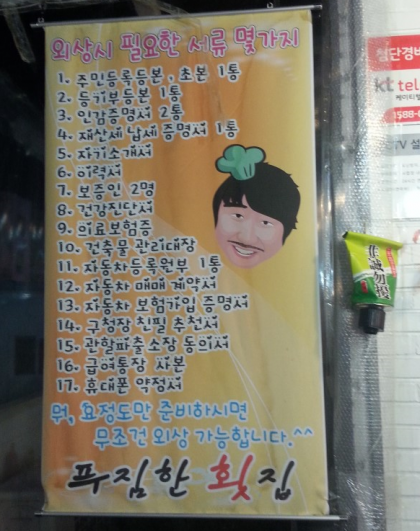 외상시 필요한 서류 몇가지
1. 주민등록등본, 초본 1통
2. 등기부등본 1통
3. 인감증명서 2통
4. 재산세 납세 증명서 1통
5. 자기소개서
6. 이력서
7. 보증인 2명
8. 건강진단서
9. 의료보험증
10. 건축물 관리대장
11. 자동차등록원부 1통
12. 자동차 매매 계약서
13. 자동차 보험가입 증명서
14. 구청장 친필 추천서
15. 관할파출소장 동의서
16. 급여통장 사본
17. 휴대폰 약정서
뭐, 요정도만 준비하시면
무조건 외상 가능합니다.^^
푸짐한 횟집
첨단경비
kt tel
1588-
非誠勿擾